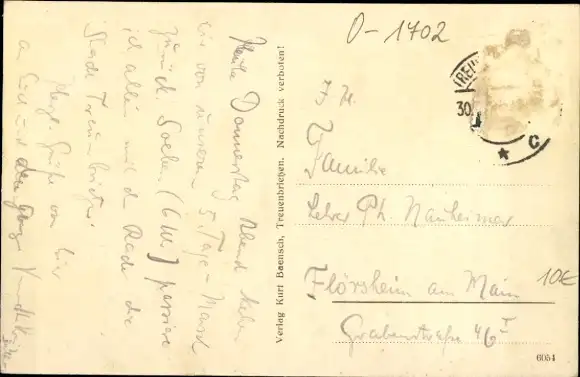 Heute Donnerstag Abend
wir von unserem 5. Tage-Marsch
zurück. Soeben (6 Uhr) passiere
ich allein mit d. Rade die
Stadt Treuenbrietzen.
Herzl. Grüße von hier
an Euch und
Verlag Kurt Baensch, Treuenbrietzen. Nachdruck verboten!
O-1702
TREU
30.
* C
Familie
Lehrer Ph. Nauheimer
Flörsheim am Main
10€
Grabenstraße 46 I
6054